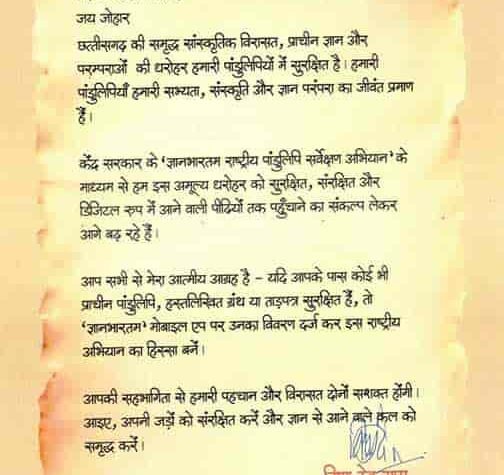 जय जोहार
छत्तीसगढ़ की समृद्ध सांस्कृतिक विरासत, प्राचीन ज्ञान और
परम्पराओं की धरोहर हमारी पांडुलिपियों में सुरक्षित है। हमारी
पांडुलिपियाँ हमारी सभ्यता, संस्कृति और ज्ञान परंपरा का जीवंत प्रमाण
हैं।
केंद्र सरकार के 'ज्ञानभारतम राष्ट्रीय पांडुलिपि सर्वेक्षण अभियान' के
माध्यम से हम इस अमूल्य धरोहर को सुरक्षित, संरक्षित और
डिजिटल रुप में आने वाली पीढ़ियों तक पहुँचाने का संकल्प लेकर
आगे बढ़ रहे हैं।
आप सभी से मेरा आत्मीय आग्रह है – यदि आपके पास कोई भी
प्राचीन पांडुलिपि, हस्तलिखित ग्रंथ या ताड़पत्र सुरक्षित हैं, तो
'ज्ञानभारतम' मोबाइल एप पर उनका विवरण दर्ज कर इस राष्ट्रीय
अभियान का हिस्सा बनें।
आपकी सहभागिता से हमारी पहचान और विरासत दोनों सशक्त होंगी।
आइए, अपनी जड़ों को संरक्षित करें और ज्ञान से आने वाले कल को
समृद्ध करें।